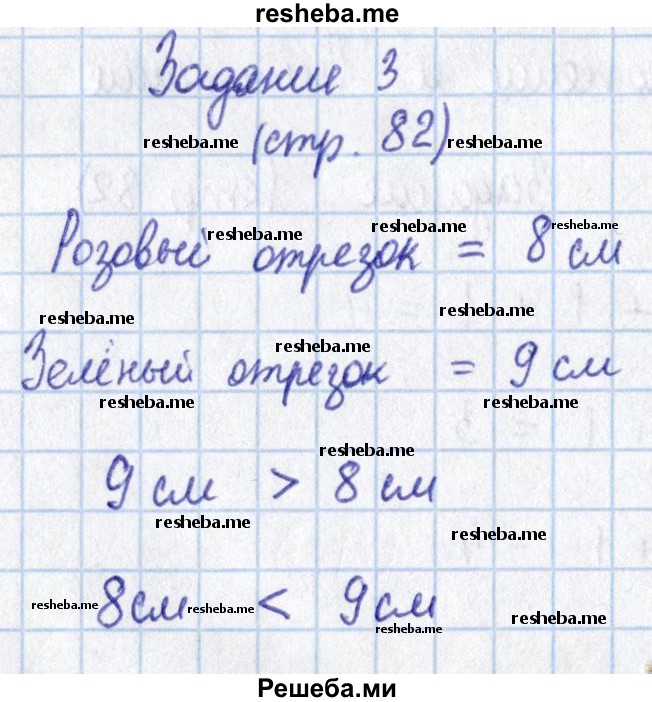 resheba.me
Задание 3
resheba.me (стр. 82) resheba.me
Розовый resheba.me отрезок resheba.me = 8 см resheba.me
resheba.me resheba.me
Зелёный отрезок resheba.me = 9 см
resheba.me resheba.me
resheba.me
9 см > 8 см
resheba.me
resheba.me
resheba.me 8 см resheba.me < 9 см
resheba.me resheba.me
Решеба.ми